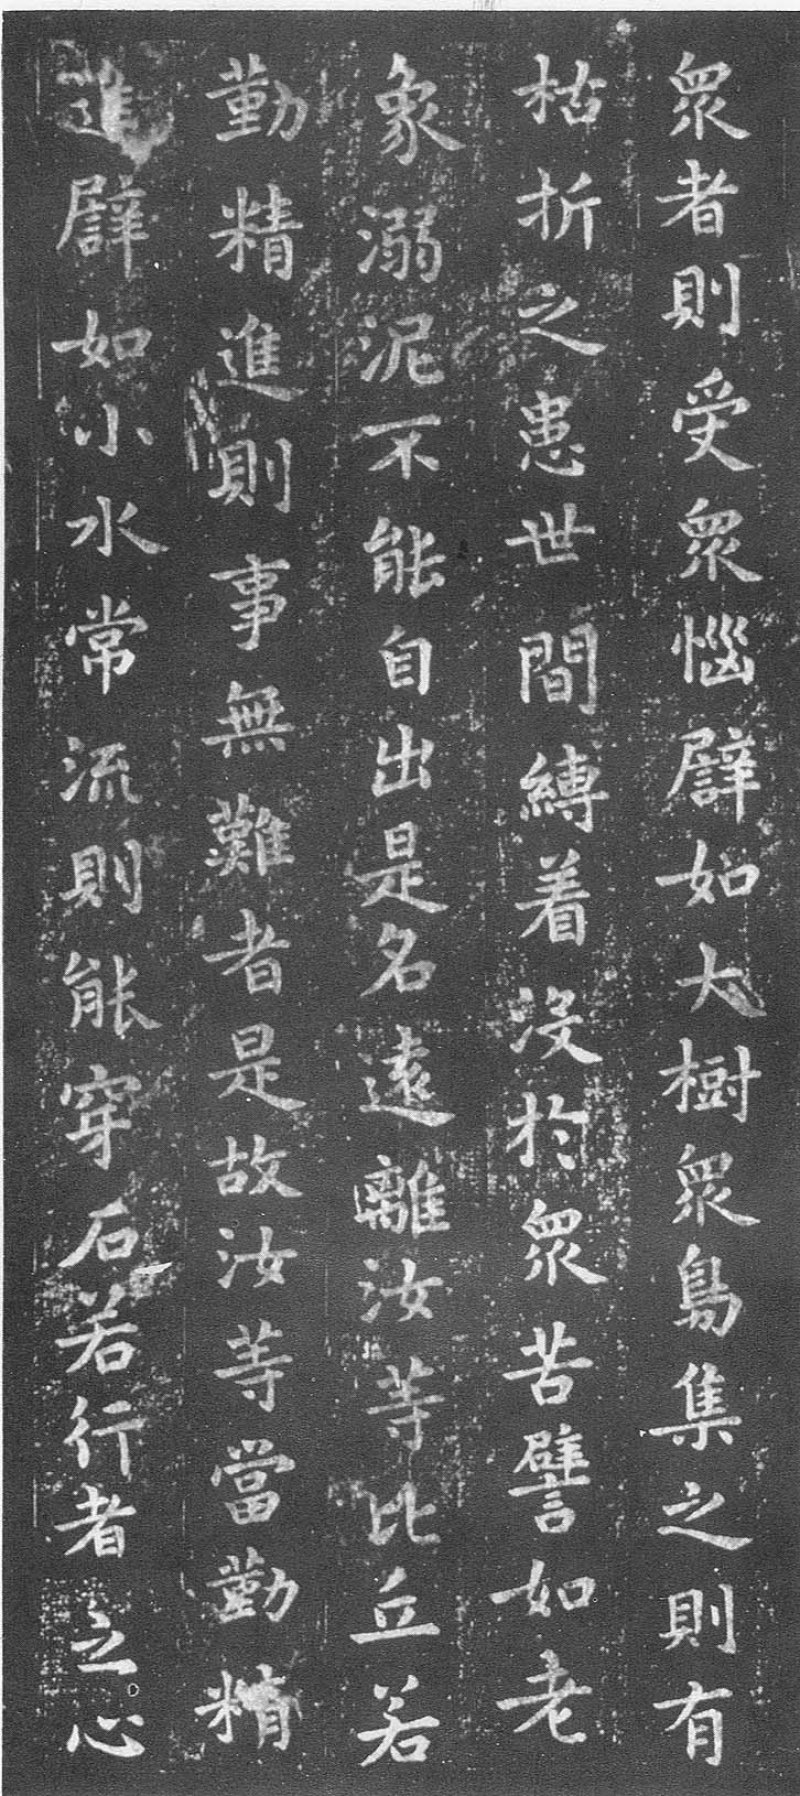 眾者則受眾惱譬如大樹眾鳥集之則有
枯折之患世間縛着沒於眾苦譬如老
象溺泥不能自出是名遠離汝等比丘若
勤精進則事無難者是故汝等當勤精
進譬如小水常流則能穿石若行者之心